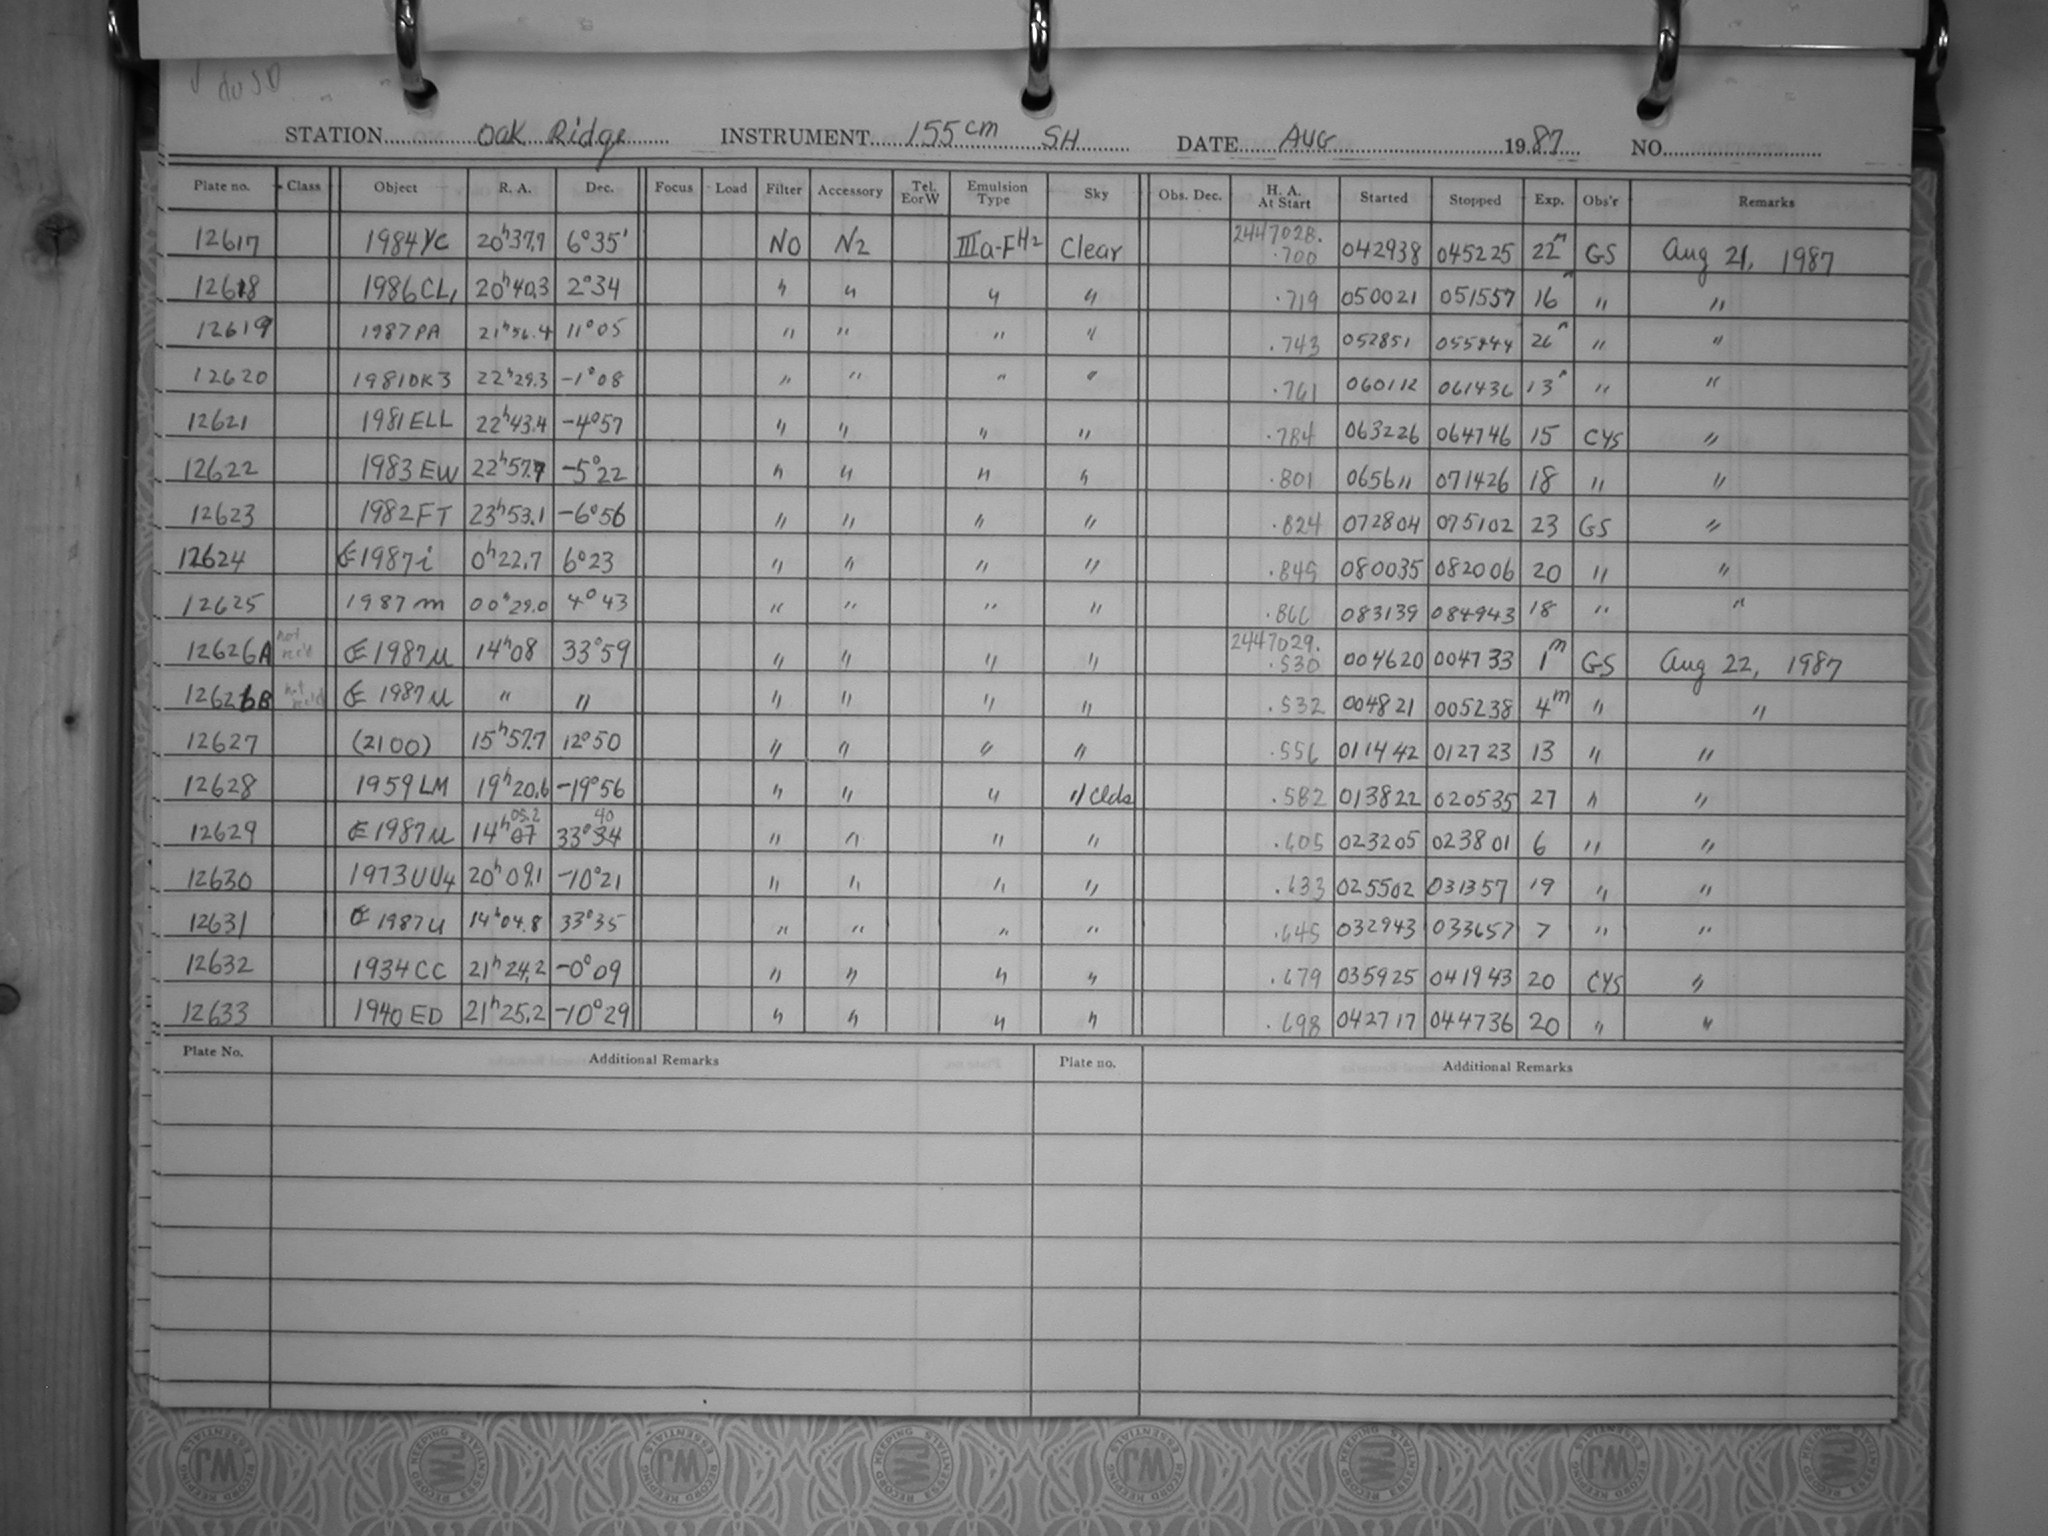 STATION Oak Ridge INSTRUMENT 155cm SH DATE AUG 1987 NO.
Plate no. Class Object R. A. Dec. Focus Load Filter Accessory Tel. EorW Emulsion Type Sky Obs. Dec. H. A. At Start Started Stopped Exp. Obs'r Remarks
12617 1984YC 20h37.9 6°35' NO N2 IIIa-F H2 Clear 2447028. .700 042938 045225 22m GS Aug 21, 1987
12618 1986CL1 20h40.3 2°34 " " " " .719 050021 051557 16m " "
12619 1987PA 21h56.4 11°05 " " " " .743 052851 055444 26m " "
12620 1981DK3 22h29.3 -1°08 " " " " .761 060112 061436 13m " "
12621 1981ELL 22h43.4 -4°57 " " " " .784 063226 064746 15 CYS "
12622 1983EW 22h57.7 -5°22 " " " " .801 065611 071426 18 " "
12623 1982FT 23h53.1 -6°56 " " " " .824 072804 075102 23 GS "
12624 1987i 0h22.7 6°23 " " " " .849 080035 082006 20 " "
12625 1987m 00h29.0 4°43 " " " " .866 083139 084943 18 " "
12626A not rec'd 1987u 14h08 33°59 " " " " 2447029. .530 004620 004733 1m GS Aug 22, 1987
12626B not rec'd 1987u " " " " " " .532 004821 005238 4m " "
12627 (2100) 15h57.7 12°50 " " " " .556 011442 012723 13 " "
12628 1959LM 19h20.6 -19°56 " " " " Clds .582 013822 020535 27 " "
12629 1987u 14h07 05.2 33°34 40 " " " " .605 023205 023801 6 " "
12630 1973UU4 20h09.1 -10°21 " " " " .633 025502 031357 19 " "
12631 1987u 14h04.8 33°35 " " " " .645 032943 033657 7 " "
12632 1934CC 21h24.2 -0°09 " " " " .679 035925 041943 20 CYS "
12633 1940ED 21h25.2 -10°29 " " " " .698 042717 044736 20 " "
Plate No. Additional Remarks Plate no. Additional Remarks
WJ RECORD KEEPING ESSENTIALS